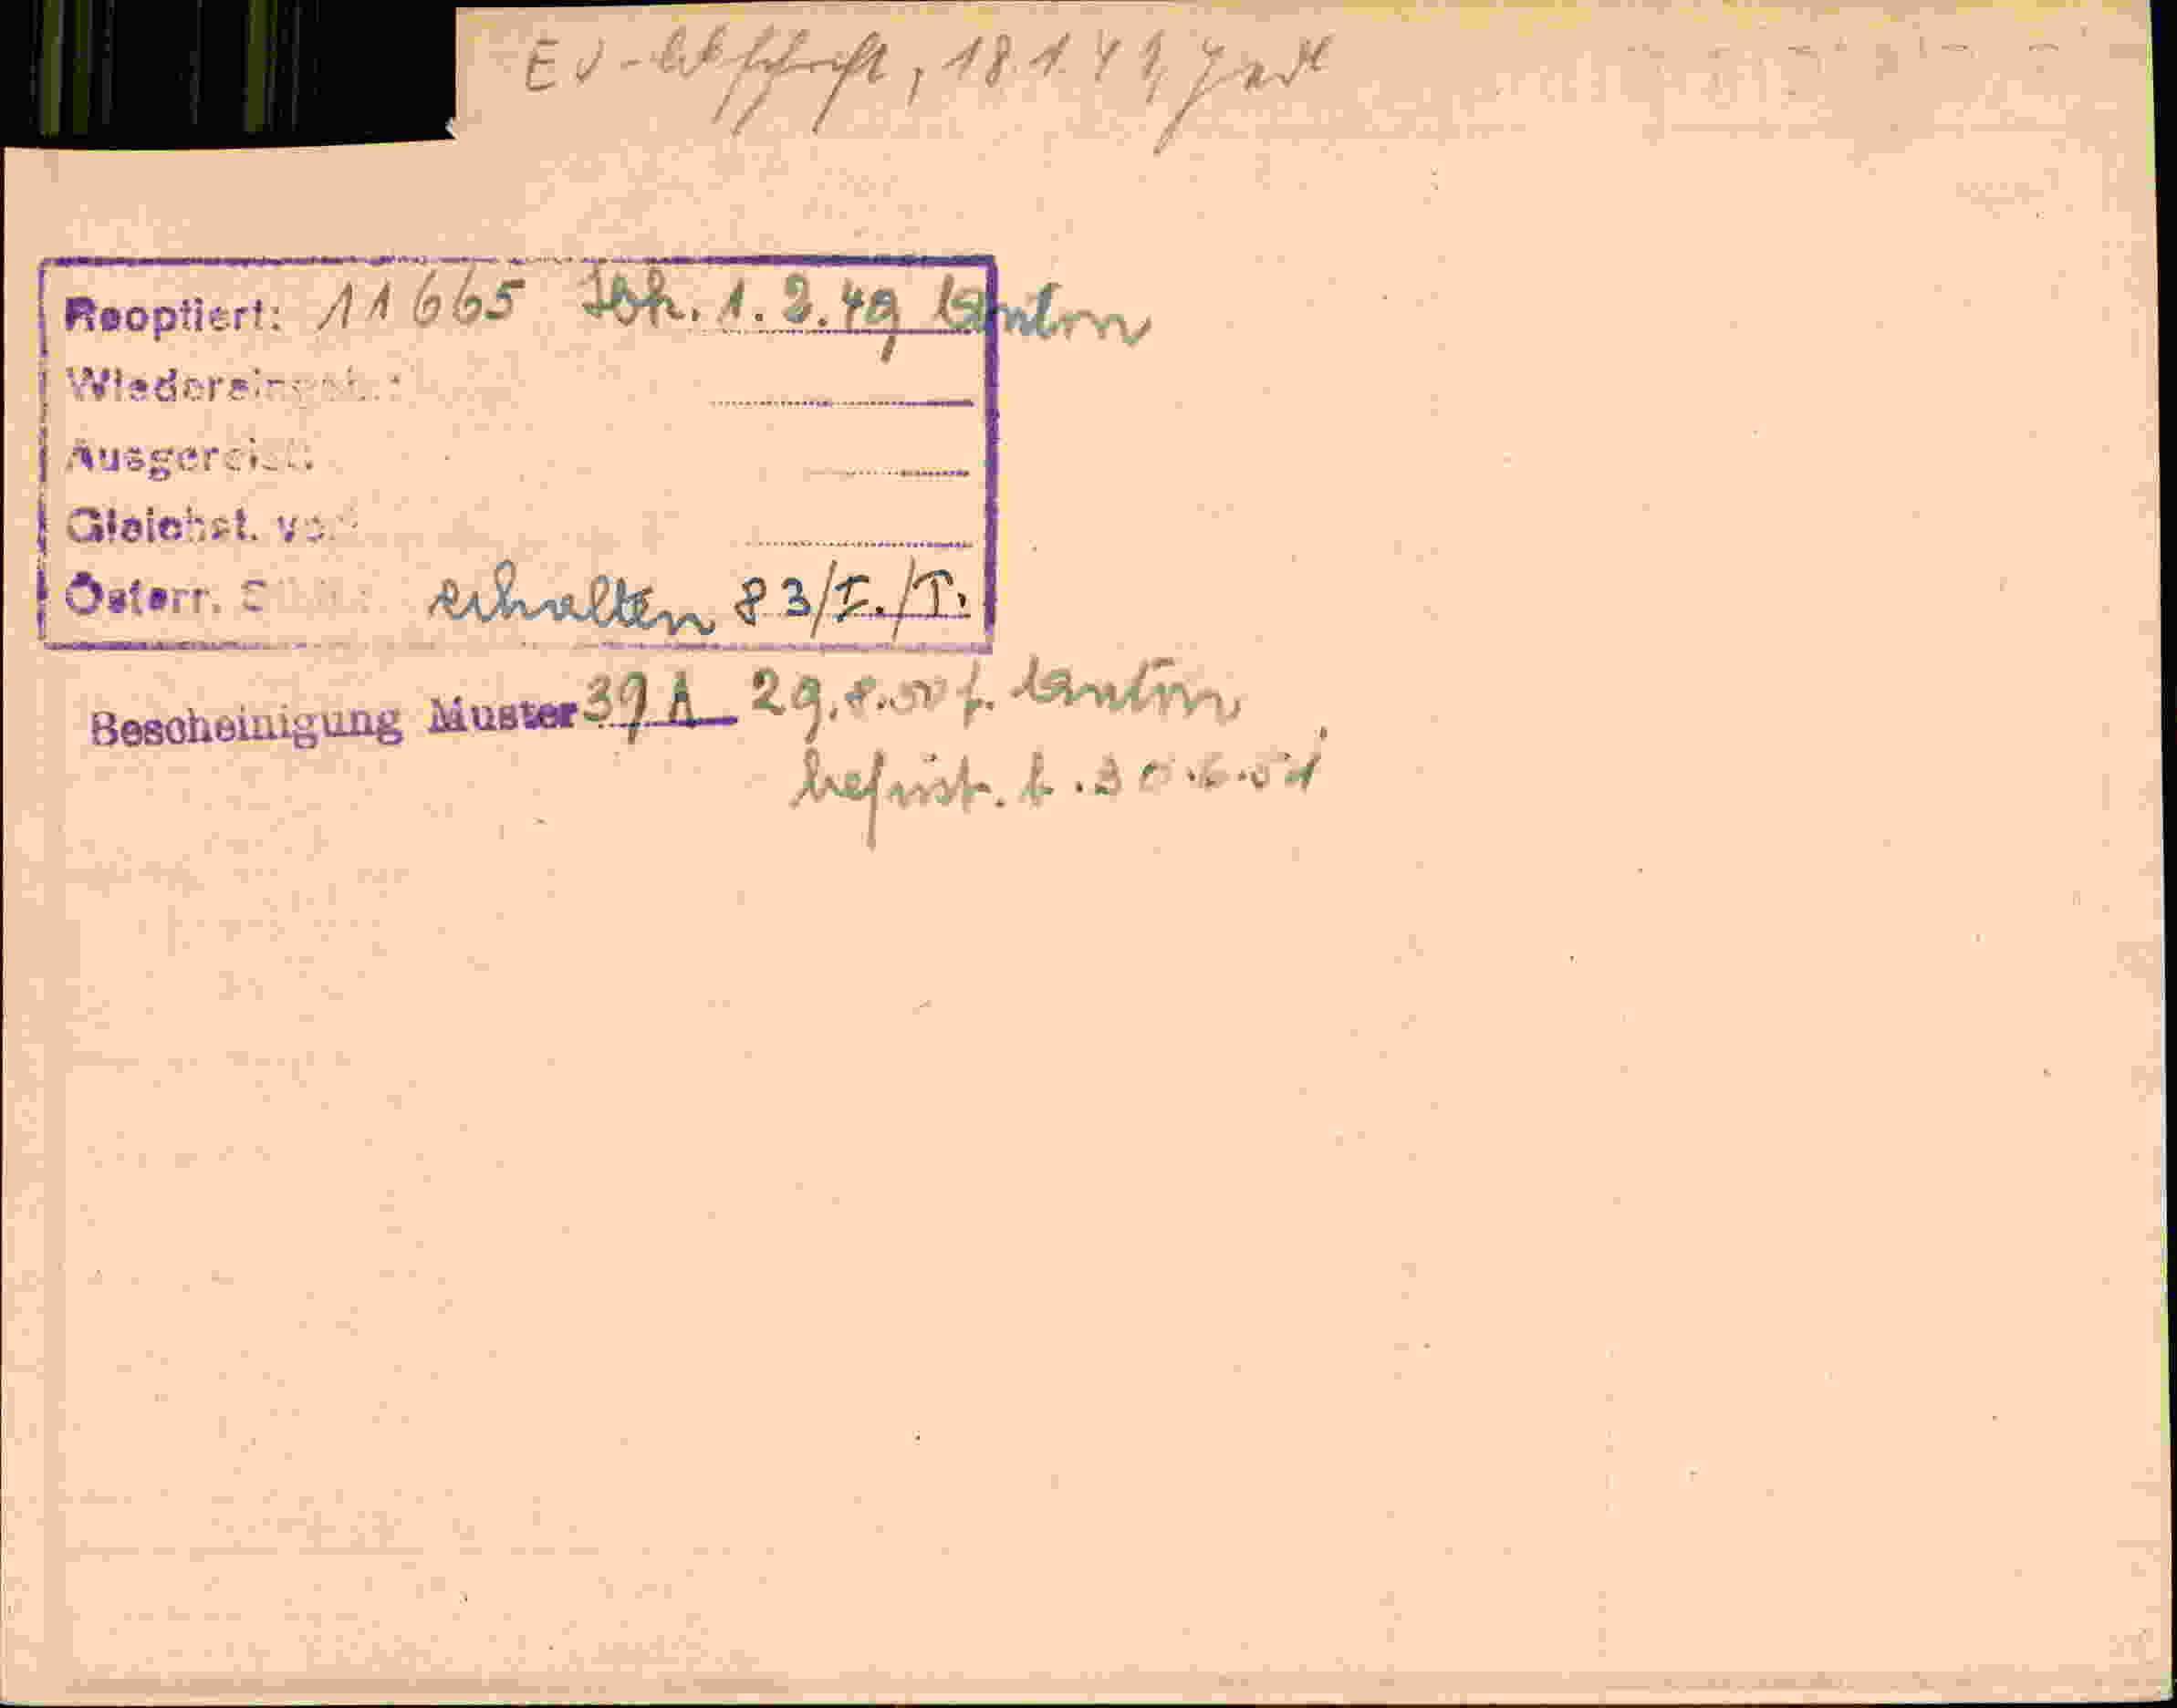 EU-Abschrift, 18.1.41,
Reoptiert: 11665 Ibk. 1.2.49 Canton
Wiedereingeb.:
Ausgereist:
Gleichst. v.
Österr.
erhalten 83/I./T.
Bescheinigung Muster 39 A 29.8.50 f. Canton
befrist. b. 30.6.51